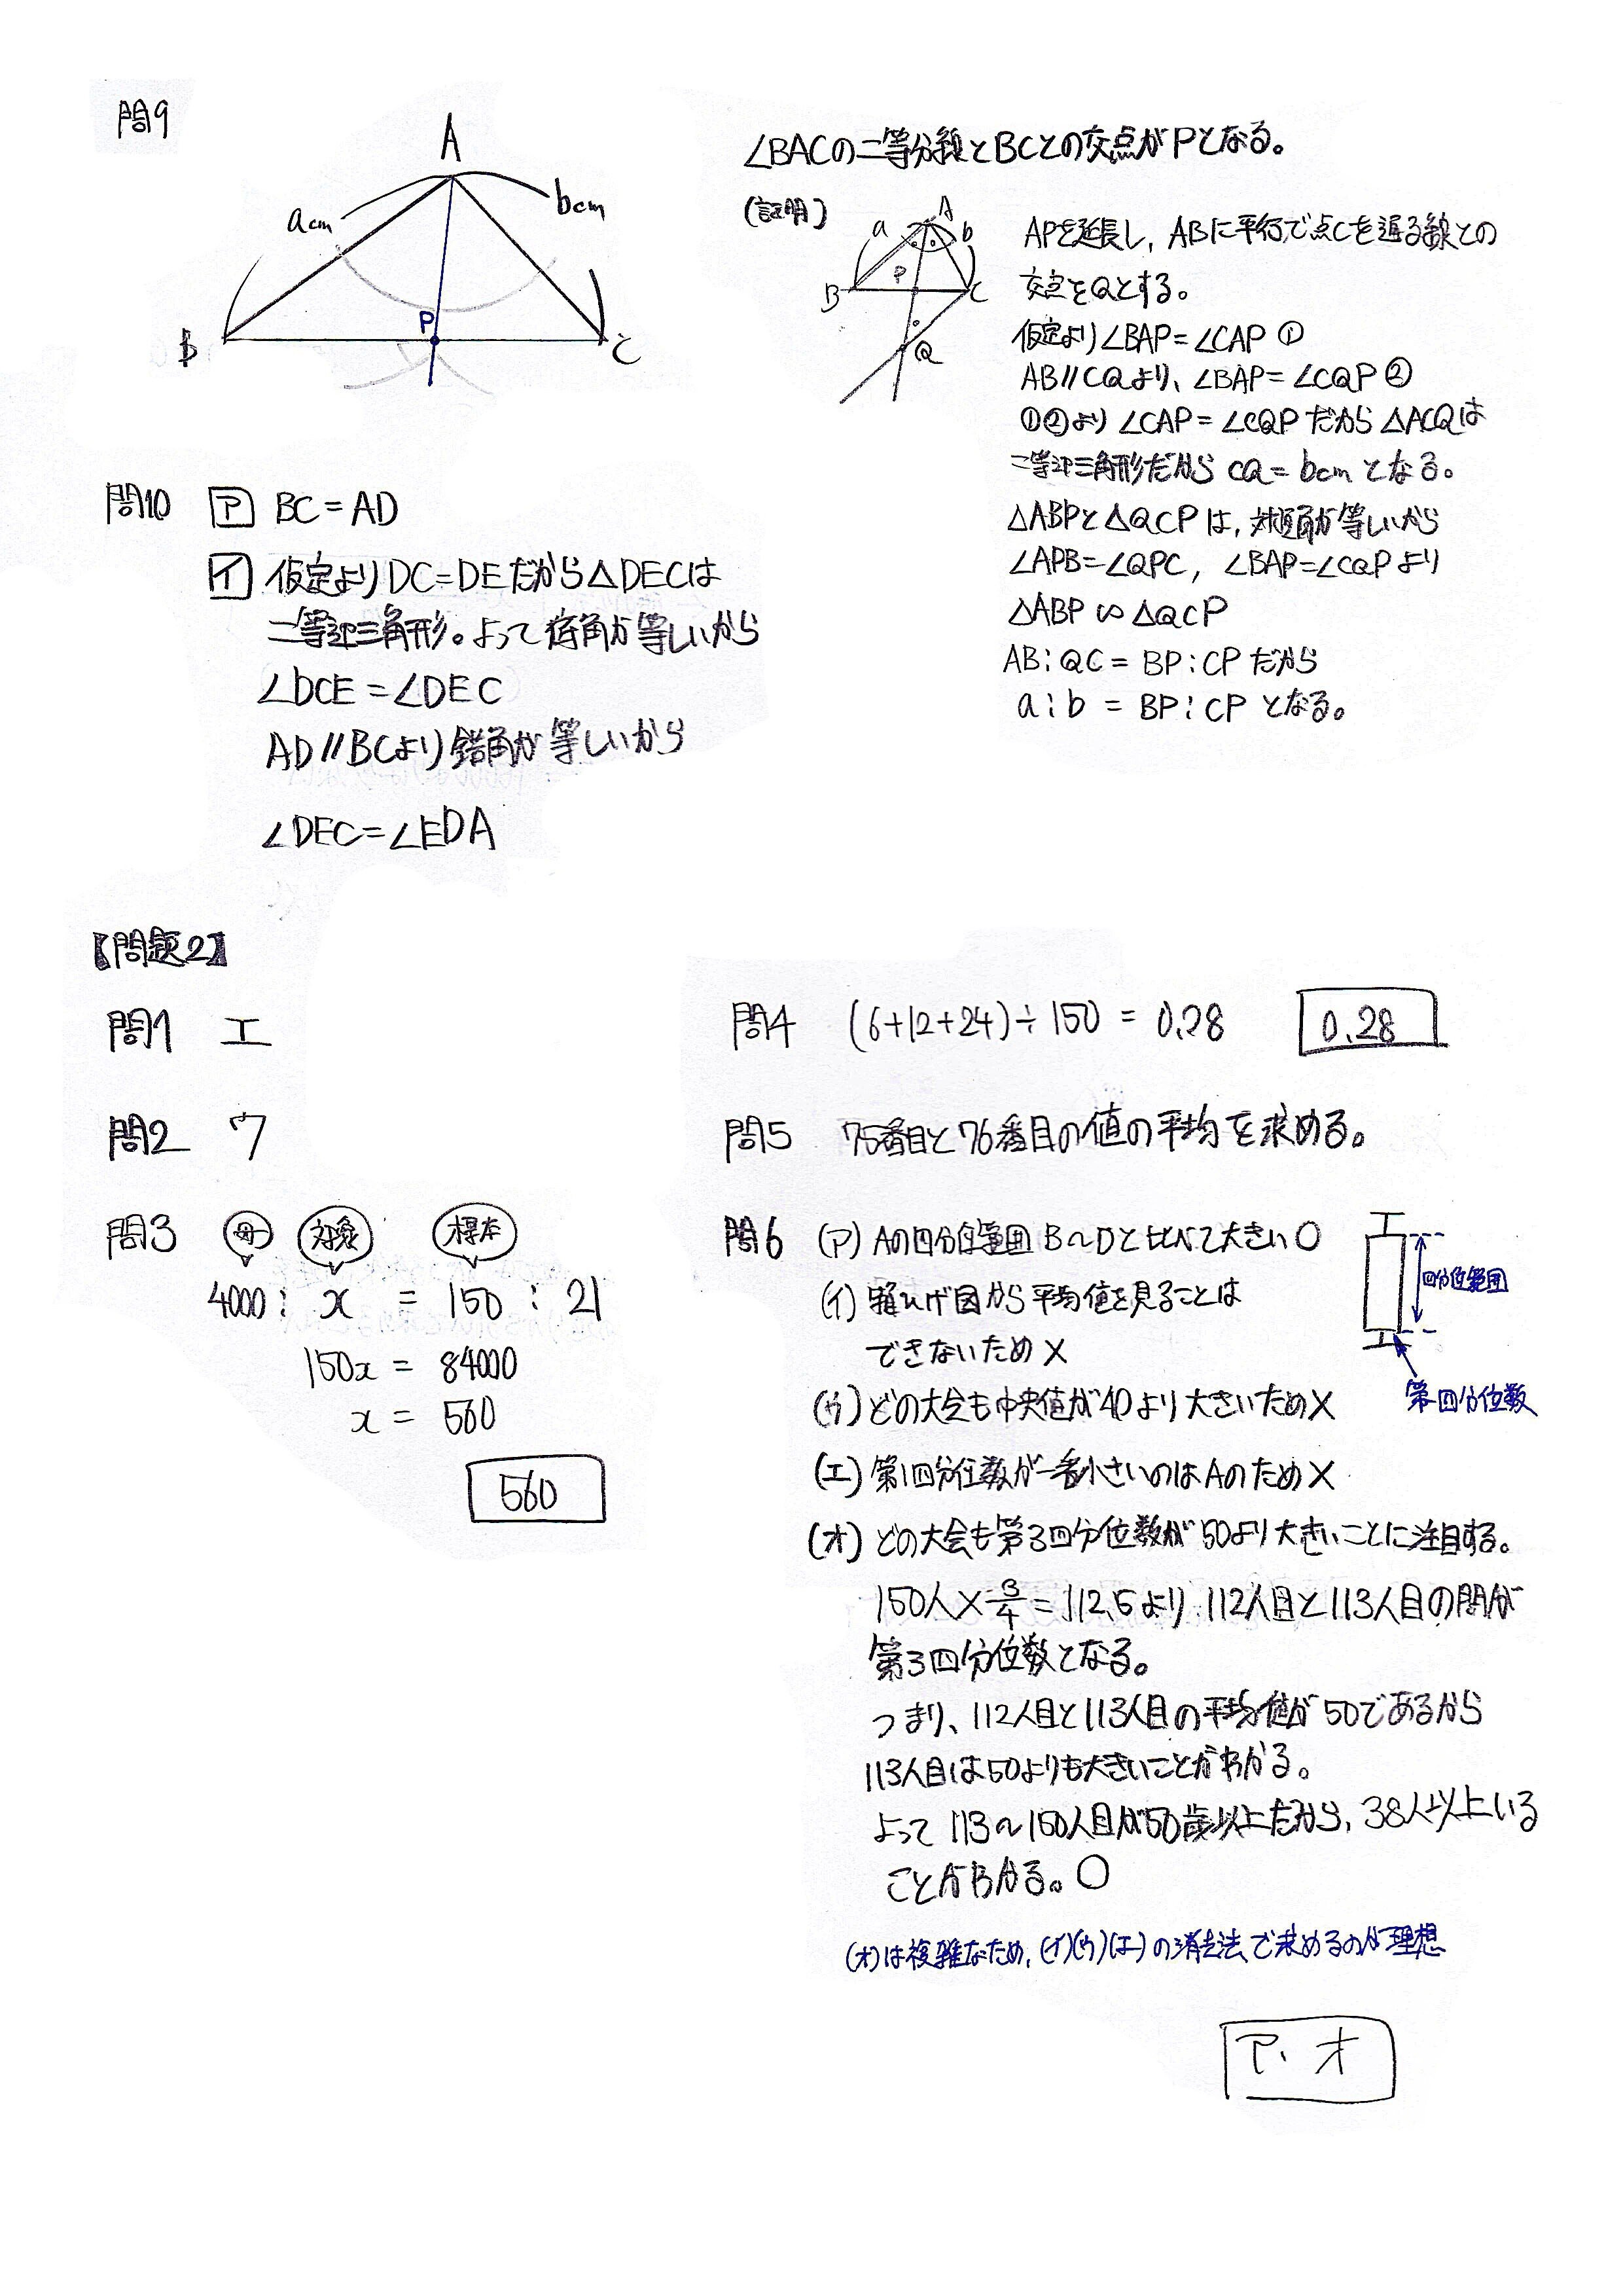 問9
A
acm
bcm
P
B
C
∠BACの二等分線とBCとの交点がPとなる。
(証明)
A
a
b
P
B
C
Q
APを延長し, ABに平行で点Cを通る線との
交点をQとする。
仮定より∠BAP=∠CAP ①
AB//CQより、∠BAP=∠CQP ②
①②より ∠CAP=∠CQP だから △ACQは
二等辺三角形だから CQ=bcm となる。
△ABPと△QCPは, 対頂角が等しいから
∠APB=∠QPC, ∠BAP=∠CQPより
△ABP∽△QCP
AB:QC = BP:CP だから
a:b = BP:CP となる。
問10 ア BC=AD
イ 仮定より DC=DEだから△DECは
二等辺三角形。よって底角が等しいから
∠DCE=∠DEC
AD//BCより錯角が等しいから
∠DEC=∠EDA
【問題2】
問1 エ
問2 ウ
問3 母 対象 標本
4000 : x = 150 : 21
150x = 84000
x = 560
560
問4 (6+12+24)÷150 = 0.28 0.28
問5 75番目と76番目の値の平均を求める。
問6 (ア) Aの四分位範囲 B~Dと比べて大きい○
(イ) 箱ひげ図から平均値を見ることは
できないため×
四分位範囲
第1四分位数
(ウ) どの大会も中央値が40より大きいため×
(エ) 第1四分位数が一番小さいのはAのため×
(オ) どの大会も第3四分位数が50より大きいことに注目する。
150人×3/4=112.5より 112人目と113人目の間が
第3四分位数となる。
つまり、112人目と113人目の平均値が50であるから
113人目は50よりも大きいことがわかる。
よって 113~150人目が50歳以上だから, 38人以上いる
ことがわかる。○
(オ)は複雑なため, (イ)(ウ)(エ)の消去法で求めるのが理想
ア、オ